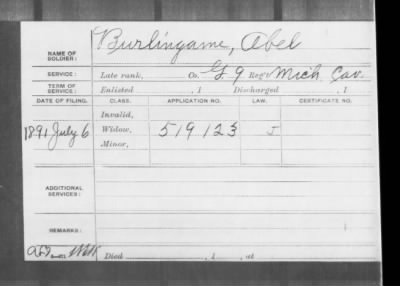 Burlingame, Abel
NAME OF SOLDIER:
SERVICE: Late rank, Co. G 9 Reg't Mich Cav.
TERM OF SERVICE: Enlisted , 1 Discharged , 1
DATE OF FILING. CLASS. APPLICATION NO. LAW. CERTIFICATE NO.
Invalid,
1891 July 6 Widow, 519 123 J
Minor,
ADDITIONAL SERVICES:
REMARKS:
Died , 1 , at